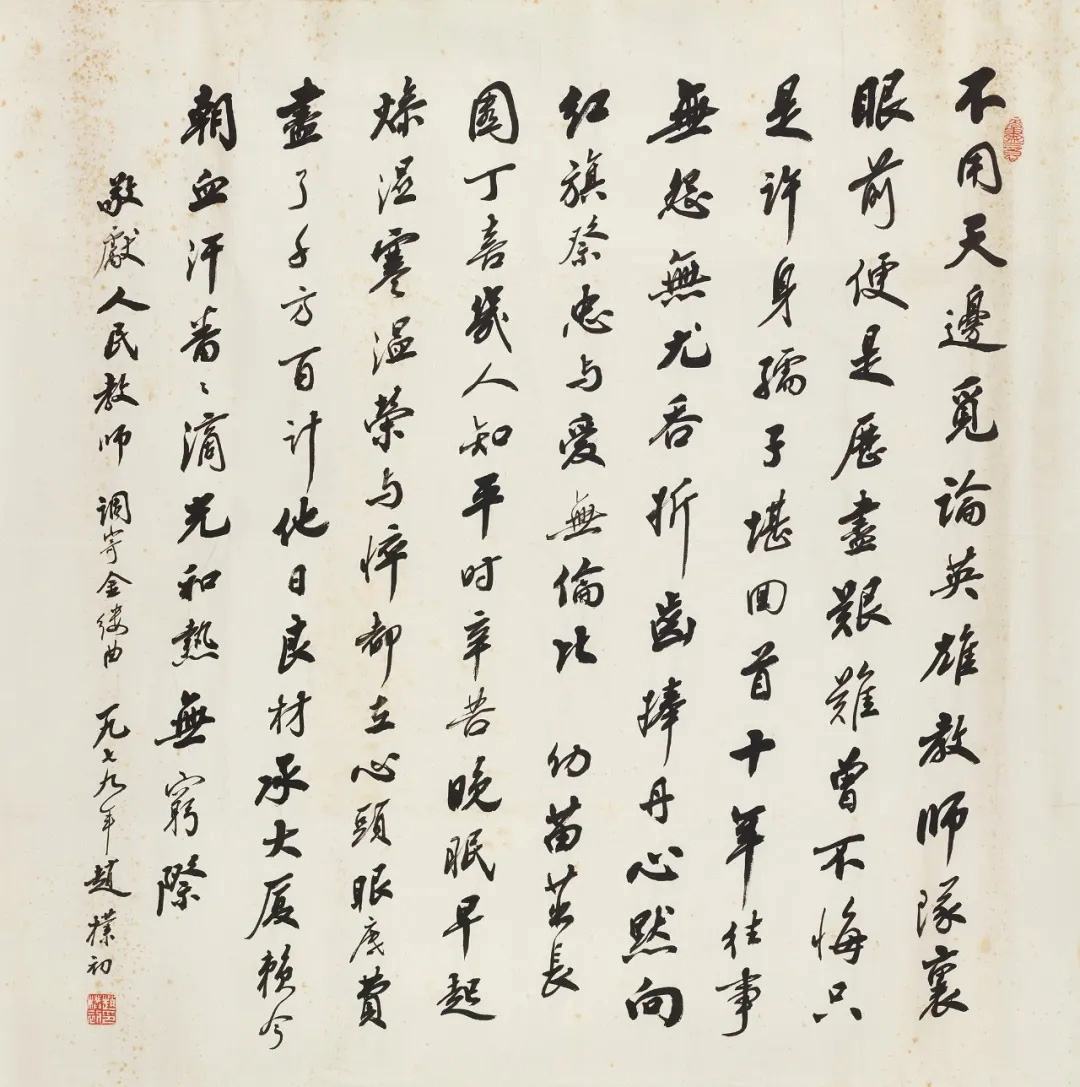 不用天邊覓論英雄教師隊裏
眼前便是歷盡艱難曾不悔只
是許身孺子堪回首十年往事
無怨無尤吞折齒捧丹心默向
紅旗祭忠与愛無倫比 幼苗茁長
園丁喜幾人知平时辛苦晚眠早起
燥湿寒温榮与悴都在心頭眼底費
盡了千方百计他日良材承大厦赖今
朝血汗番〻滴光和熱無窮際
敬獻人民教师 调寄金缕曲 一九七九年 趙樸初